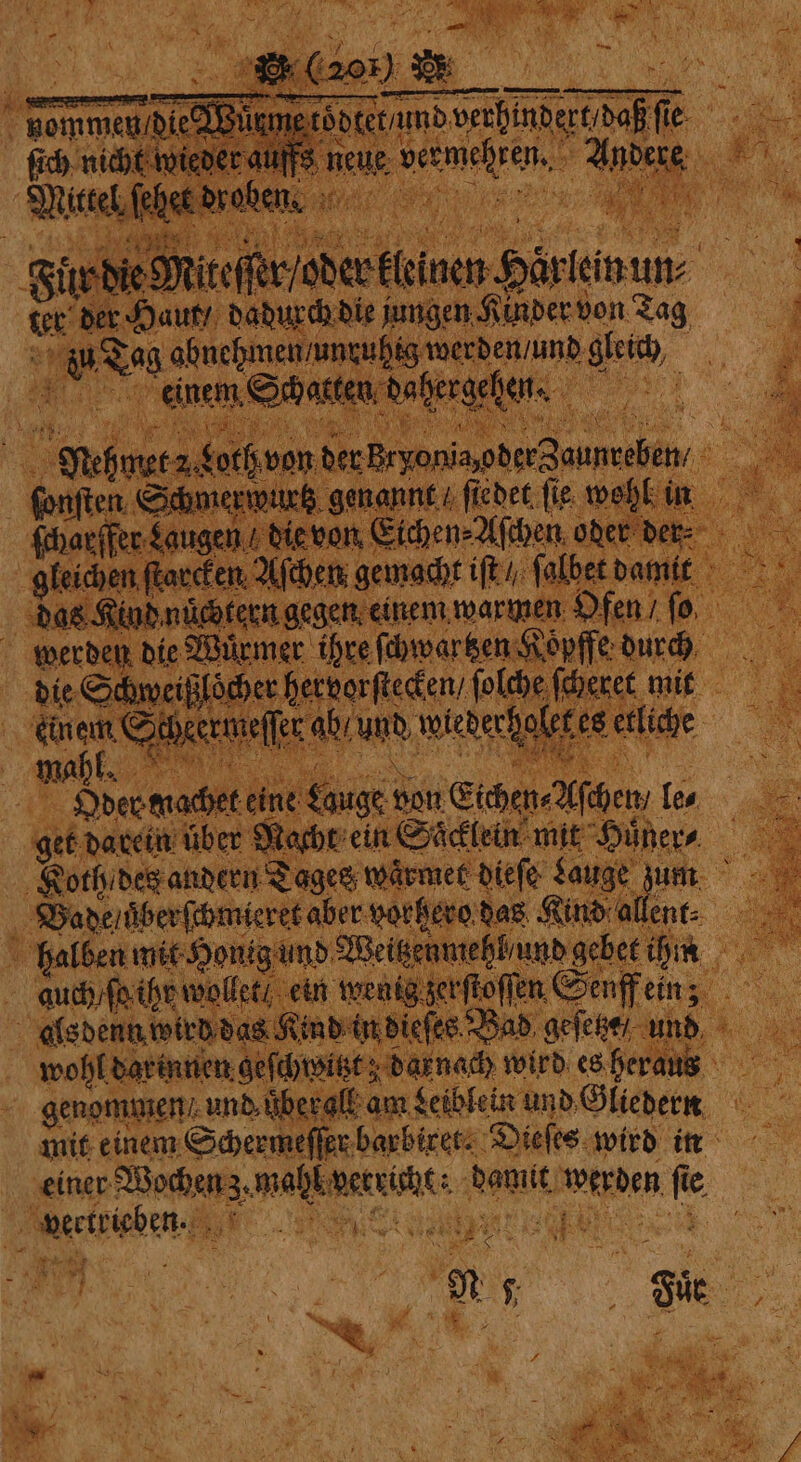 (201)
nommen/die Wuͤrme toͤdtet/und verhindert/daß ſie
ſich nicht wieder auffs neue vermehren. Andere
Mittel ſehet droben.
Fuͤr die Miteſſer/oder kleinen Haͤrlein un⸗
ter der Haut/ dadurch die jungen Kinder von Tag
zu Tag abnehmen/unruhig werden/und gleich
einem Schatten dahergehen.
Nehmet 2. Loth von der Bryonia, oder Zaunreben/
ſonſten Schmerwurtz genannt/ ſiedet ſie wohl in
ſcharffer Laugen/ die von Eichen⸗Aſchen oder der⸗
gleichen ſtarcken Aſchen gemacht iſt/ ſalbet damit
das Kind nuͤchtern gegen einem warmen Ofen/ ſo
werden die Wuͤrmer ihre ſchwartzen Koͤpffe durch
die Schweißloͤcher hervorſtecken/ ſolche ſcheret mit
einem Scheermeſſer ab/ und wiederholet es etliche
mahl.
Oder machet eine Lauge von Eichen⸗Aſchen/ le⸗
get darein uͤber Nacht ein Saͤcklein mit Huͤner⸗
Koth/des andern Tages waͤrmet dieſe Lauge zum
Bade/uͤberſchmieret aber vorhero das Kind allent⸗
halben mit Honig und Weitzenmehl/und gebet ihm
auch/ſo ihr wollet/ ein wenig zerſtoſſen Senff ein;
alsdenn wird das Kind in dieſes Bad geſetzt/ und
wohl darinnen geſchwitzt; darnach wird es heraus
genommen/ und uͤberall am Leiblein und Gliedern
mit einem Schermeſſer barbiret. Dieſes wird in
einer Wochen 3. mahl verricht: damit werden ſie
vertrieben.
N 5 Fuͤr